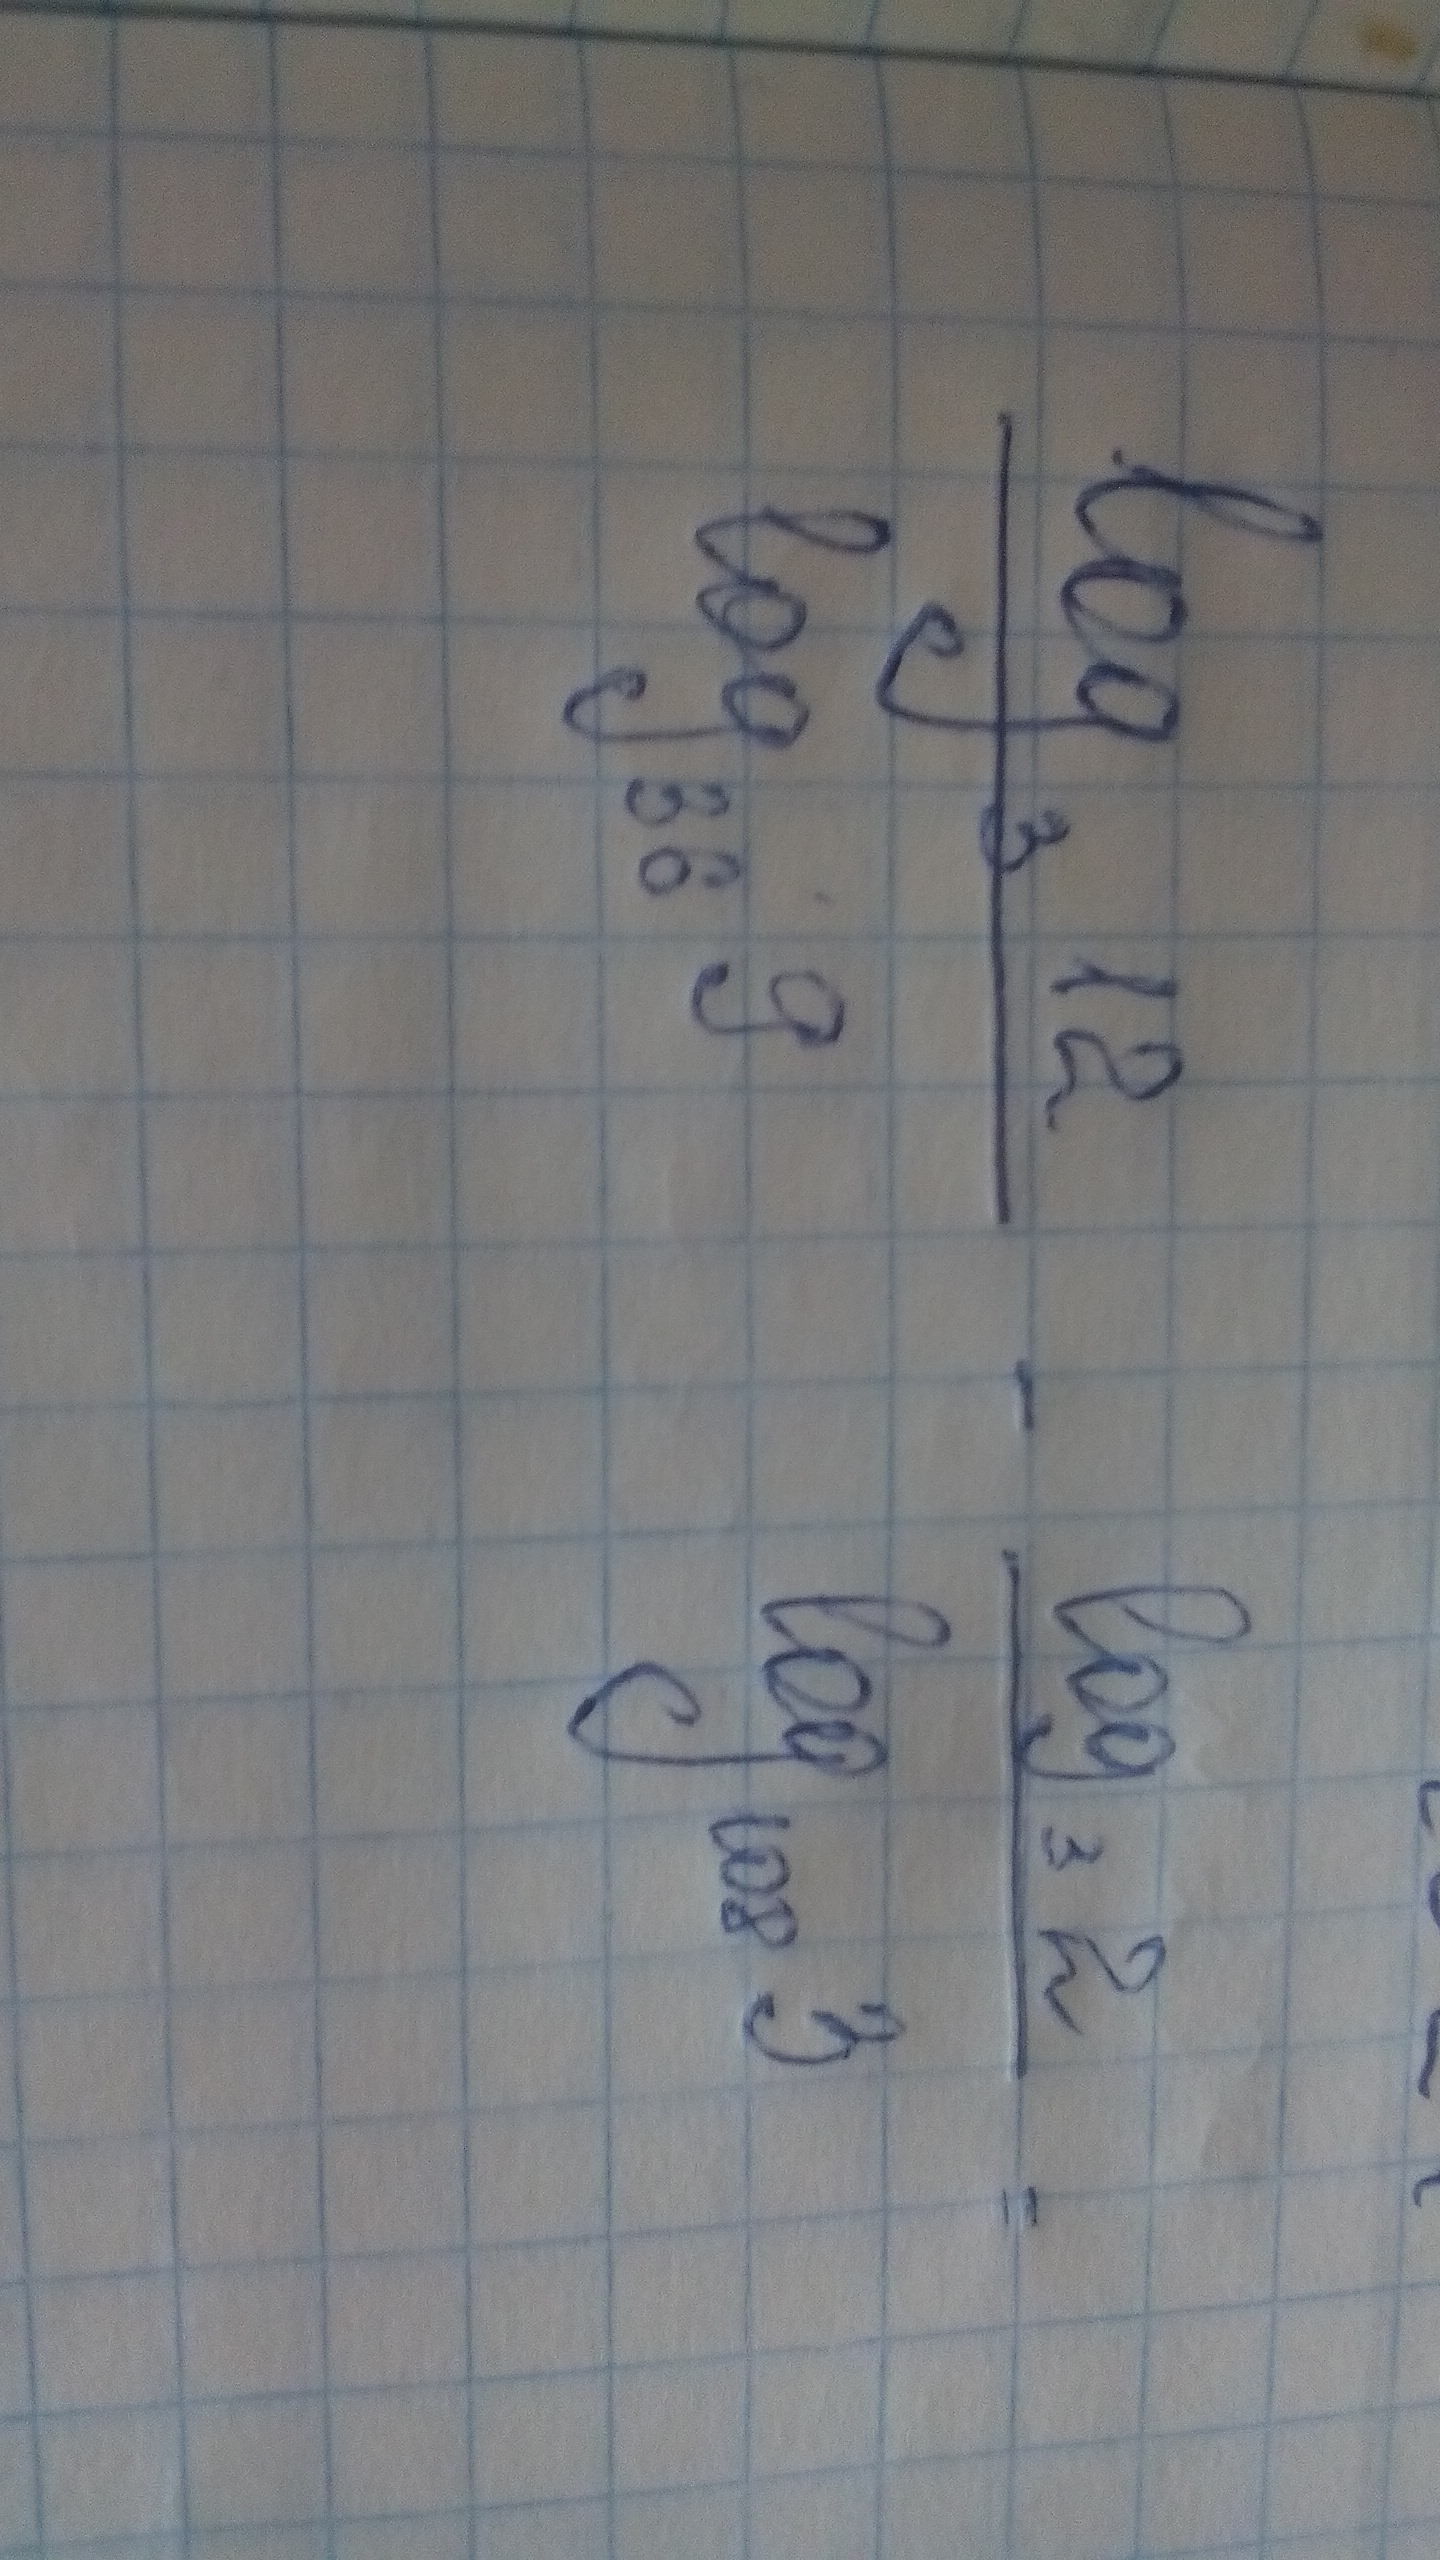 log₃ 12 / log₃₆ 9 - log₃ 2 / log₁₀₈ 3 =